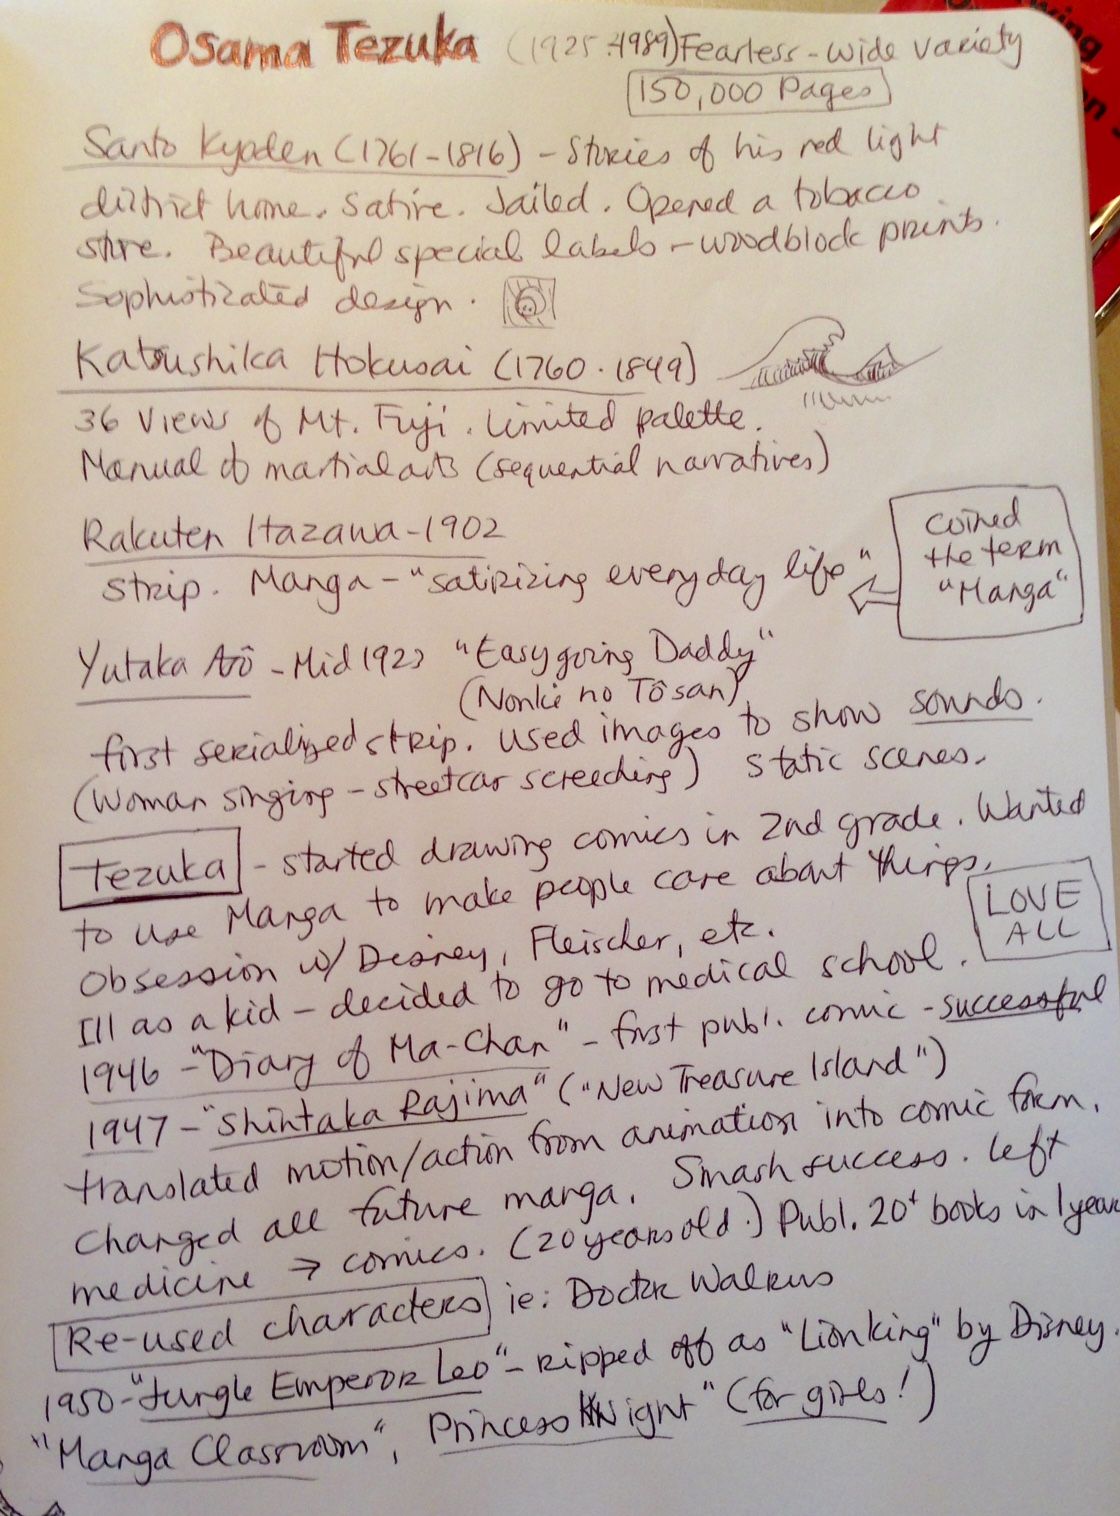 Osama Tezuka (1925-1989) Fearless - wide variety
150,000 Pages
Santo Kyoden (1761-1816) - Stories of his red light
district home. Satire. Jailed. Opened a tobacco
store. Beautiful special labels - woodblock prints.
Sophisticated design.
Katsushika Hokusai (1760-1849)
36 Views of Mt. Fuji. Limited palette.
Manual of martial arts (sequential narratives)
Rakuten Itazawa - 1902
strip. Manga - "satirizing everyday life"
coined
the term
"Manga"
Yutaka Asō - Mid 1923 "Easygoing Daddy"
(Nonki no Tōsan)
first serialized strip. Used images to show sounds.
(Woman singing - streetcar screeching) static scenes.
Tezuka - started drawing comics in 2nd grade. Wanted
to use Manga to make people care about things.
LOVE
ALL
Obsession w/ Disney, Fleischer, etc.
Ill as a kid - decided to go to medical school.
1946 - "Diary of Ma-Chan" - first publ. comic - successful
1947 - "Shintaka Rajima" ("New Treasure Island")
translated motion/action from animation into comic form.
Changed all future manga. Smash success. Left
medicine → comics. (20 years old.) Publ. 20+ books in 1 year
Re-used characters ie: Doctor Walrus
1950 - "Jungle Emperor Leo" - ripped off as "Lion King" by Disney.
"Manga Classroom", Princess Knight" (for girls!)